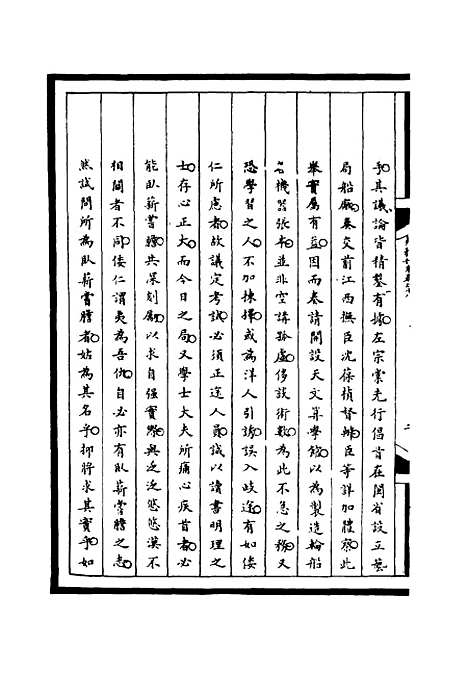 乎其議論皆精鑿有據左宗棠先行倡首在閩省設立藝
局船廠奏交前江西撫臣沈葆楨督辦臣等詳加體察此
舉實屬有益因而奏請開設天文算學館以為製造輪船
各機器張本並非空講孤虛侈談術數為此不急之務又
恐學習之人不加揀擇或為洋人引誘誤入歧途有如倭
仁所慮者故議定考試必須正途人員誠以讀書明理之
士存心正大而今日之局又學士大夫所痛心疾首者必
能臥薪嘗膽共深刻厲以求自强實際與泛泛悠悠漠不
相關者不同倭仁謂夷為吾仇自必亦有臥薪嘗膽之志
然試問所為臥薪嘗膽者姑為其名乎抑將求其實乎如